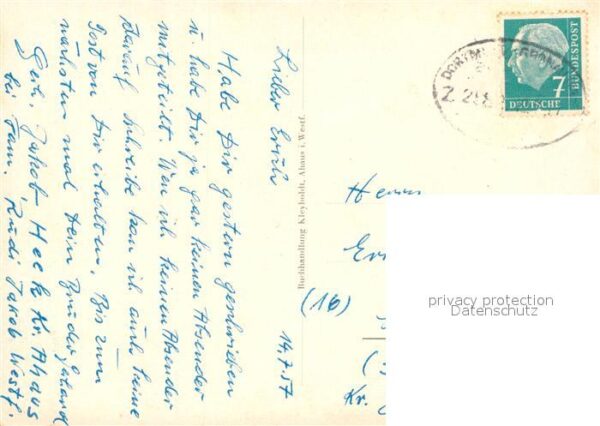 14.7.57
Lieber Erich
Habe Dir gestern geschrieben
u. habe Dir ja gar keinen Absender
mitgeteilt. Wen ich keinen Absender
darauf schreibe kan ich auch keine
Post von Dir erhalten. Bis zum
nächsten mal Dein Bruder Gerhard
Gerh. Jakob, Heek Kr. Ahaus
bei Fam. Rudi Jakob Westf.
Buchhandlung Kleyboldt, Ahaus i. Westf.
DEUTSCHE
BUNDESPOST
7
Herrn
(16)
Kr.
privacy protection
Datenschutz